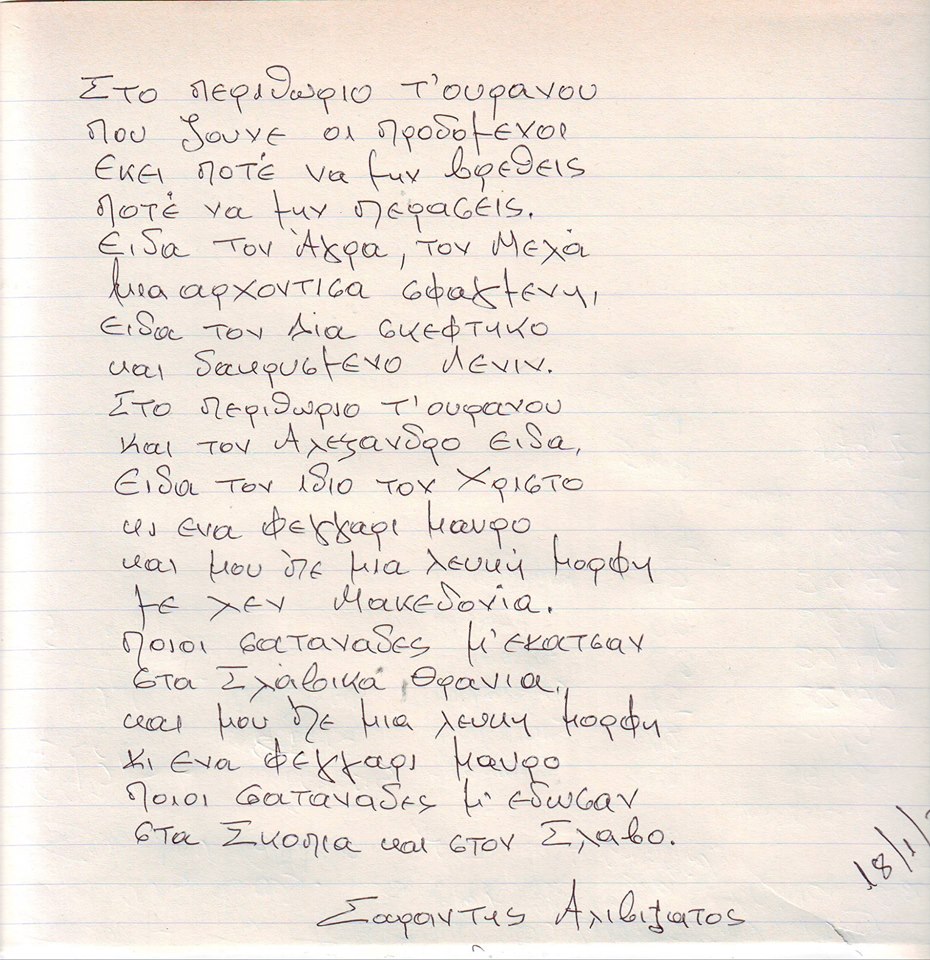 Στο περιθωριο τ'ουρανου
που ζουνε οι προδομενοι
εκει ποτέ να μην βρεθεις
ποτέ να μην περασεις.
Ειδα τον Άγρα, τον Μελά
μια αρχοντισα σφαγμενη,
ειδα τον Δια σκεφτικο
και δακρυσμενο Λενιν.
Στο περιθωριο τ'ουρανου
και τον Αλεξανδρο ειδα,
Ειδα τον ιδιο τον Χριστο
κι ενα φεγγαρι μαυρο
και μου πε μια λευκή μορφη
με λεν Μακεδονία.
ποιοι σαταναδες μ'εκατσαν
στα Σλάβικά θρανια,
και μου πε μια λευκη μορφη
κι ενα φεγγαρι μαυρο
ποιοι σαταναδες μ' εδωσαν
στα Σκοπια και στον Σλαβο.
18/1/
Σαραντης Αλιβιζατος